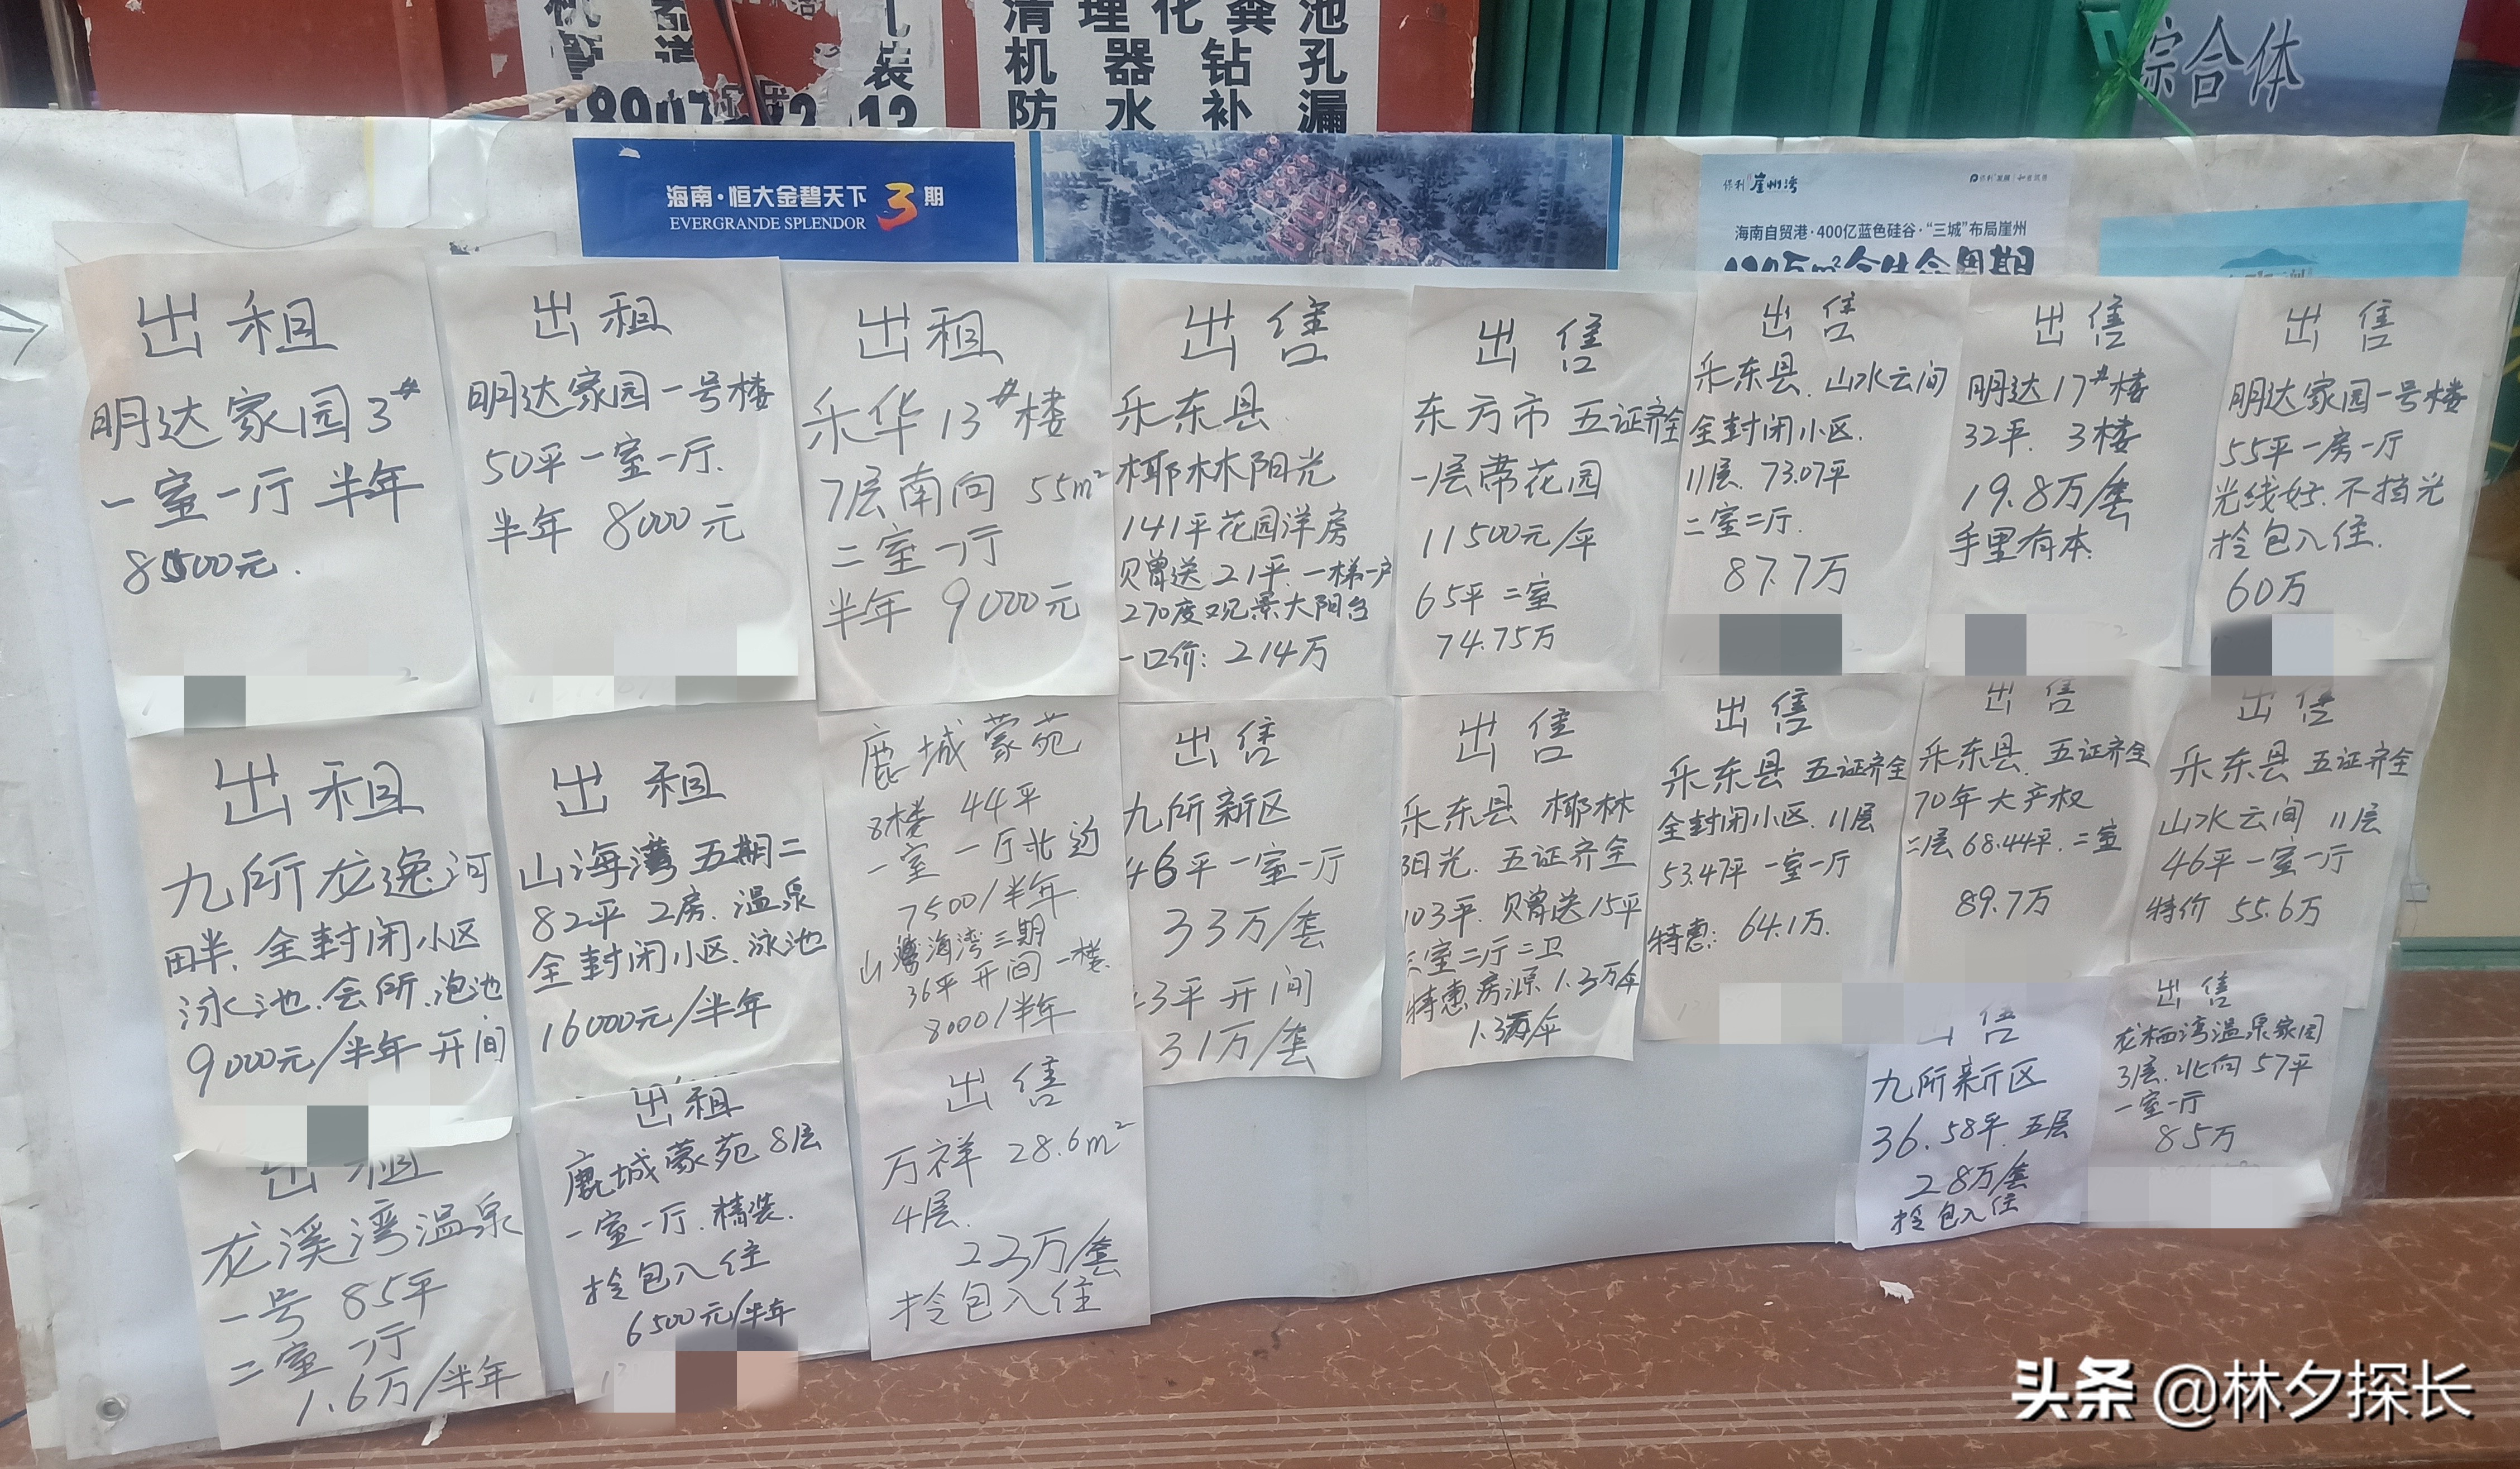 清理化粪池
机器钻孔
防水补漏
装
综合体
海南·恒大金碧天下3期
EVERGRANDE SPLENDOR
保利 崖州湾
海南自贸港·400亿蓝色硅谷·“三城”布局崖州
出租
明达家园3#
一室一厅 半年
8500元.
出租
明达家园一号楼
50平一室一厅.
半年 8000元
出租
乐华13#楼
7层南向 55m²
二室一厅
半年 9000元
出售
乐东县
椰林阳光
141平花园洋房
赠送21平.一梯一户
270度观景大阳台
一口价:214万
出售
东方市 五证齐全
一层带花园
11500元/平
65平二室
74.75万
出售
乐东县.山水云间
全封闭小区.
11层.73.07平
二室二厅.
87.7万
出售
明达17#楼
32平.3楼
19.8万/套
手里有本.
出售
明达家园一号楼
55平一房一厅
光线好.不挡光
拎包入住.
60万
出租
九所龙逸河
畔.全封闭小区
泳池.会所.泡池
9000元/半年 开间
出租
山海湾五期二
82平 2房.温泉
全封闭小区.泳池
16000元/半年
鹿城蒙苑
8楼 44平
一室一厅北边
7500/半年
山海湾三期
36平开间一楼.
8000/半年
出售
九所新区
46平一室一厅
33万/套
43平开间
31万/套
出售
乐东县 椰林
阳光.五证齐全
103平.赠送15平
三室二厅二卫
特惠房源1.3万/平
1.3万/平
出售
乐东县 五证齐全
全封闭小区.11层
53.47平 一室一厅
特惠:64.1万.
出售
乐东县.五证齐全
70年大产权
二层68.44平.二室
89.7万
出售
乐东县 五证齐全
山水云间 11层
46平一室一厅
特价 55.6万
出租
龙溪湾温泉
一号 85平
二室一厅
1.6万/半年
出租
鹿城蒙苑8层
一室一厅.精装.
拎包入住
6500元/半年
出售
万祥 28.6m²
4层.
23万/套
拎包入住
出售
九所新区
36.58平.五层
28万/套
拎包入住
出售
龙栖湾温泉家园
3层.北向 57平
一室一厅
85万
头条 @林夕探长